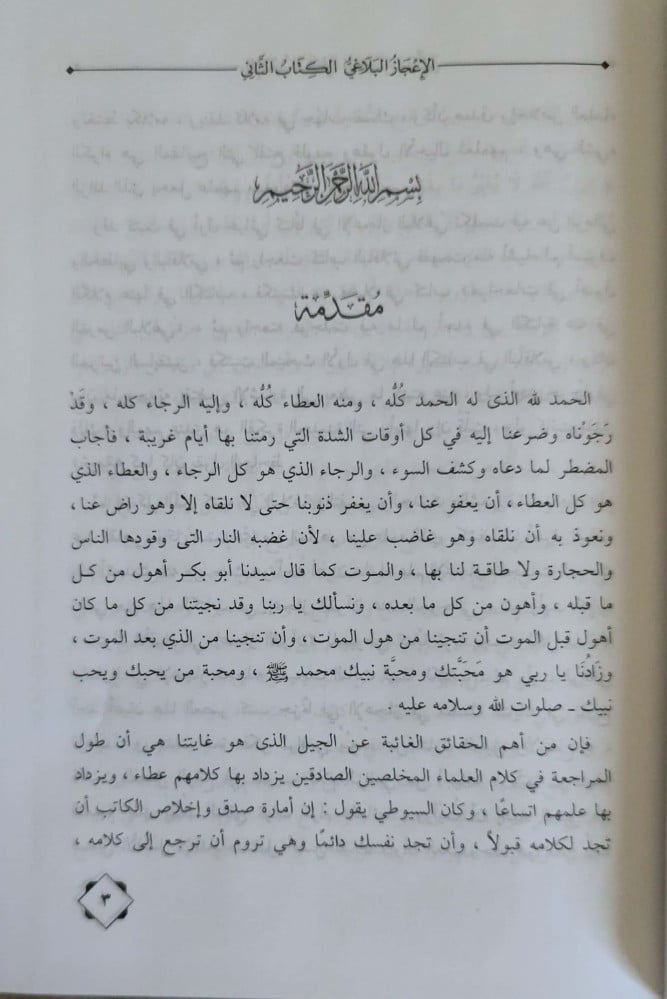 الإعجازُ البَلاغيُّ الكِتَابُ الثَّانِي
بِسْمِ اللَّهِ الرَّحْمَنِ الرَّحِيمِ
مُقَدِّمَة
الحمد لله الذى له الحمد كُلُّه ، ومنه العطاء كُلُّه ، وإليه الرجاء كله ، وقَدْ
رَجَوْنَاه وضرعنا إليه في كل أوقات الشدة التي رمتنا بها أيام غريبة ، فأجاب
المضطر لما دعاه وكشف السوء ، والرجاء الذي هو كل الرجاء ، والعطاء الذي
هو كل العطاء ، أن يعفو عنا ، وأن يغفر ذنوبنا حتى لا نلقاه إلا وهو راض عنا ،
ونعوذ به أن نلقاه وهو غاضب علينا ، لأن غضبه النار التى وقودها الناس
والحجارة ولا طاقة لنا بها ، والموت كما قال سيدنا أبو بكر أهول من كل
ما قبله ، وأهون من كل ما بعده ، ونسألك يا ربنا وقد نجيتنا من كل ما كان
أهول قبل الموت أن تنجينا من هول الموت ، وأن تنجينا من الذي بعد الموت ،
وزَادُنَا يا ربي هو مَحَبَّتك ومحبَّة نبيك محمد ﷺ ، ومحبة من يحبك ويحب
نبيك ـ صلوات الله وسلامه عليه .
فإن من أهم الحقائق الغائبة عن الجيل الذى هو غايتنا هي أن طول
المراجعة في كلام العلماء المخلصين الصادقين يزداد بها كلامهم عطاء ، ويزداد
بها علمهم اتساعًا ، وكان السيوطي يقول : إن أمارة صدق وإخلاص الكاتب أن
تجد لكلامه قبولاً ، وأن تجد نفسك دائمًا وهي تروم أن ترجع إلى كلامه ،
٣